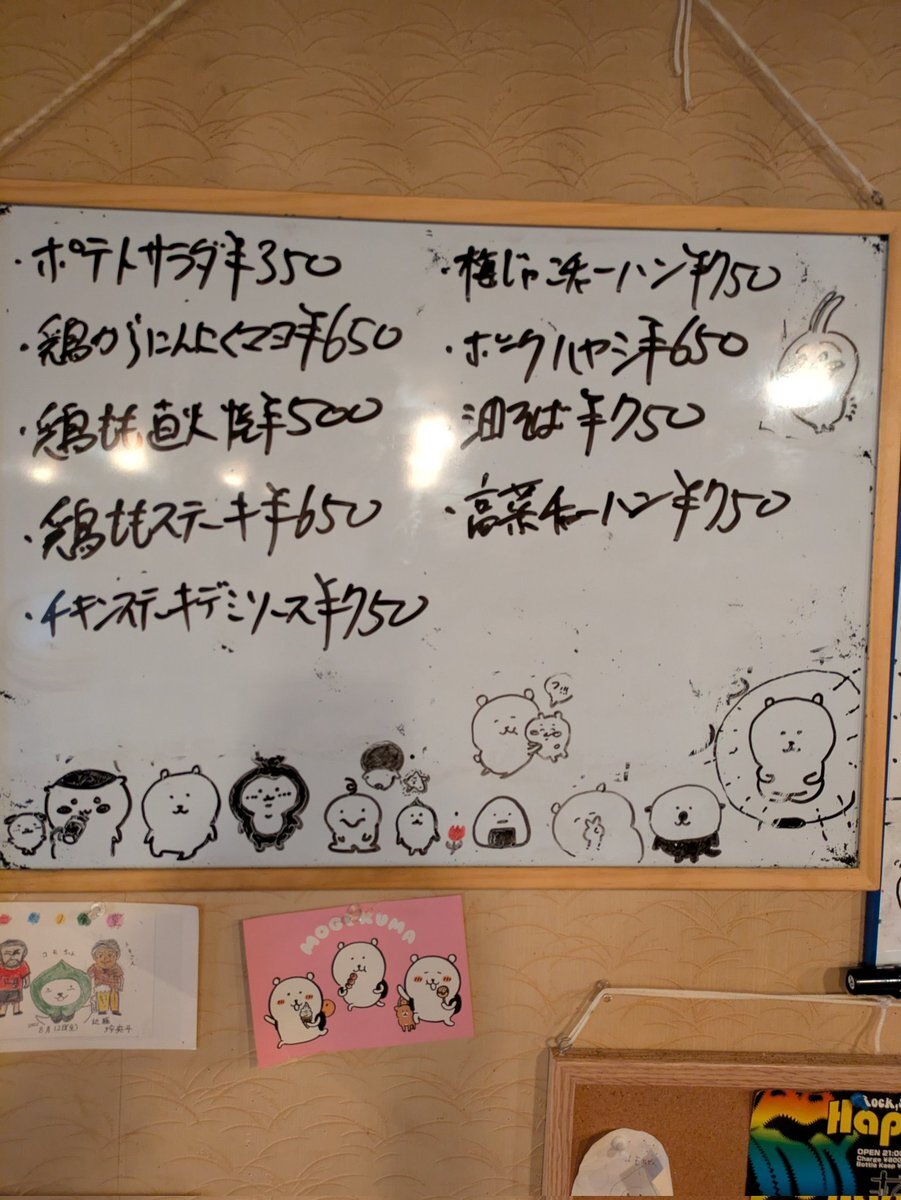 ・ポテトサラダ¥350
・鶏からにんにくマヨ¥650
・鶏もも直火焼¥500
・鶏ももステーキ¥650
・チキンステーキデミソース¥750
・梅じゃこチャーハン¥750
・ポークハヤシ¥650
油そば¥750
・高菜チャーハン¥750
MOGUKUMA
8月12日(金)
Rock,
Hap
OPEN 21:00
Charge ¥800
Bottle Keep ¥